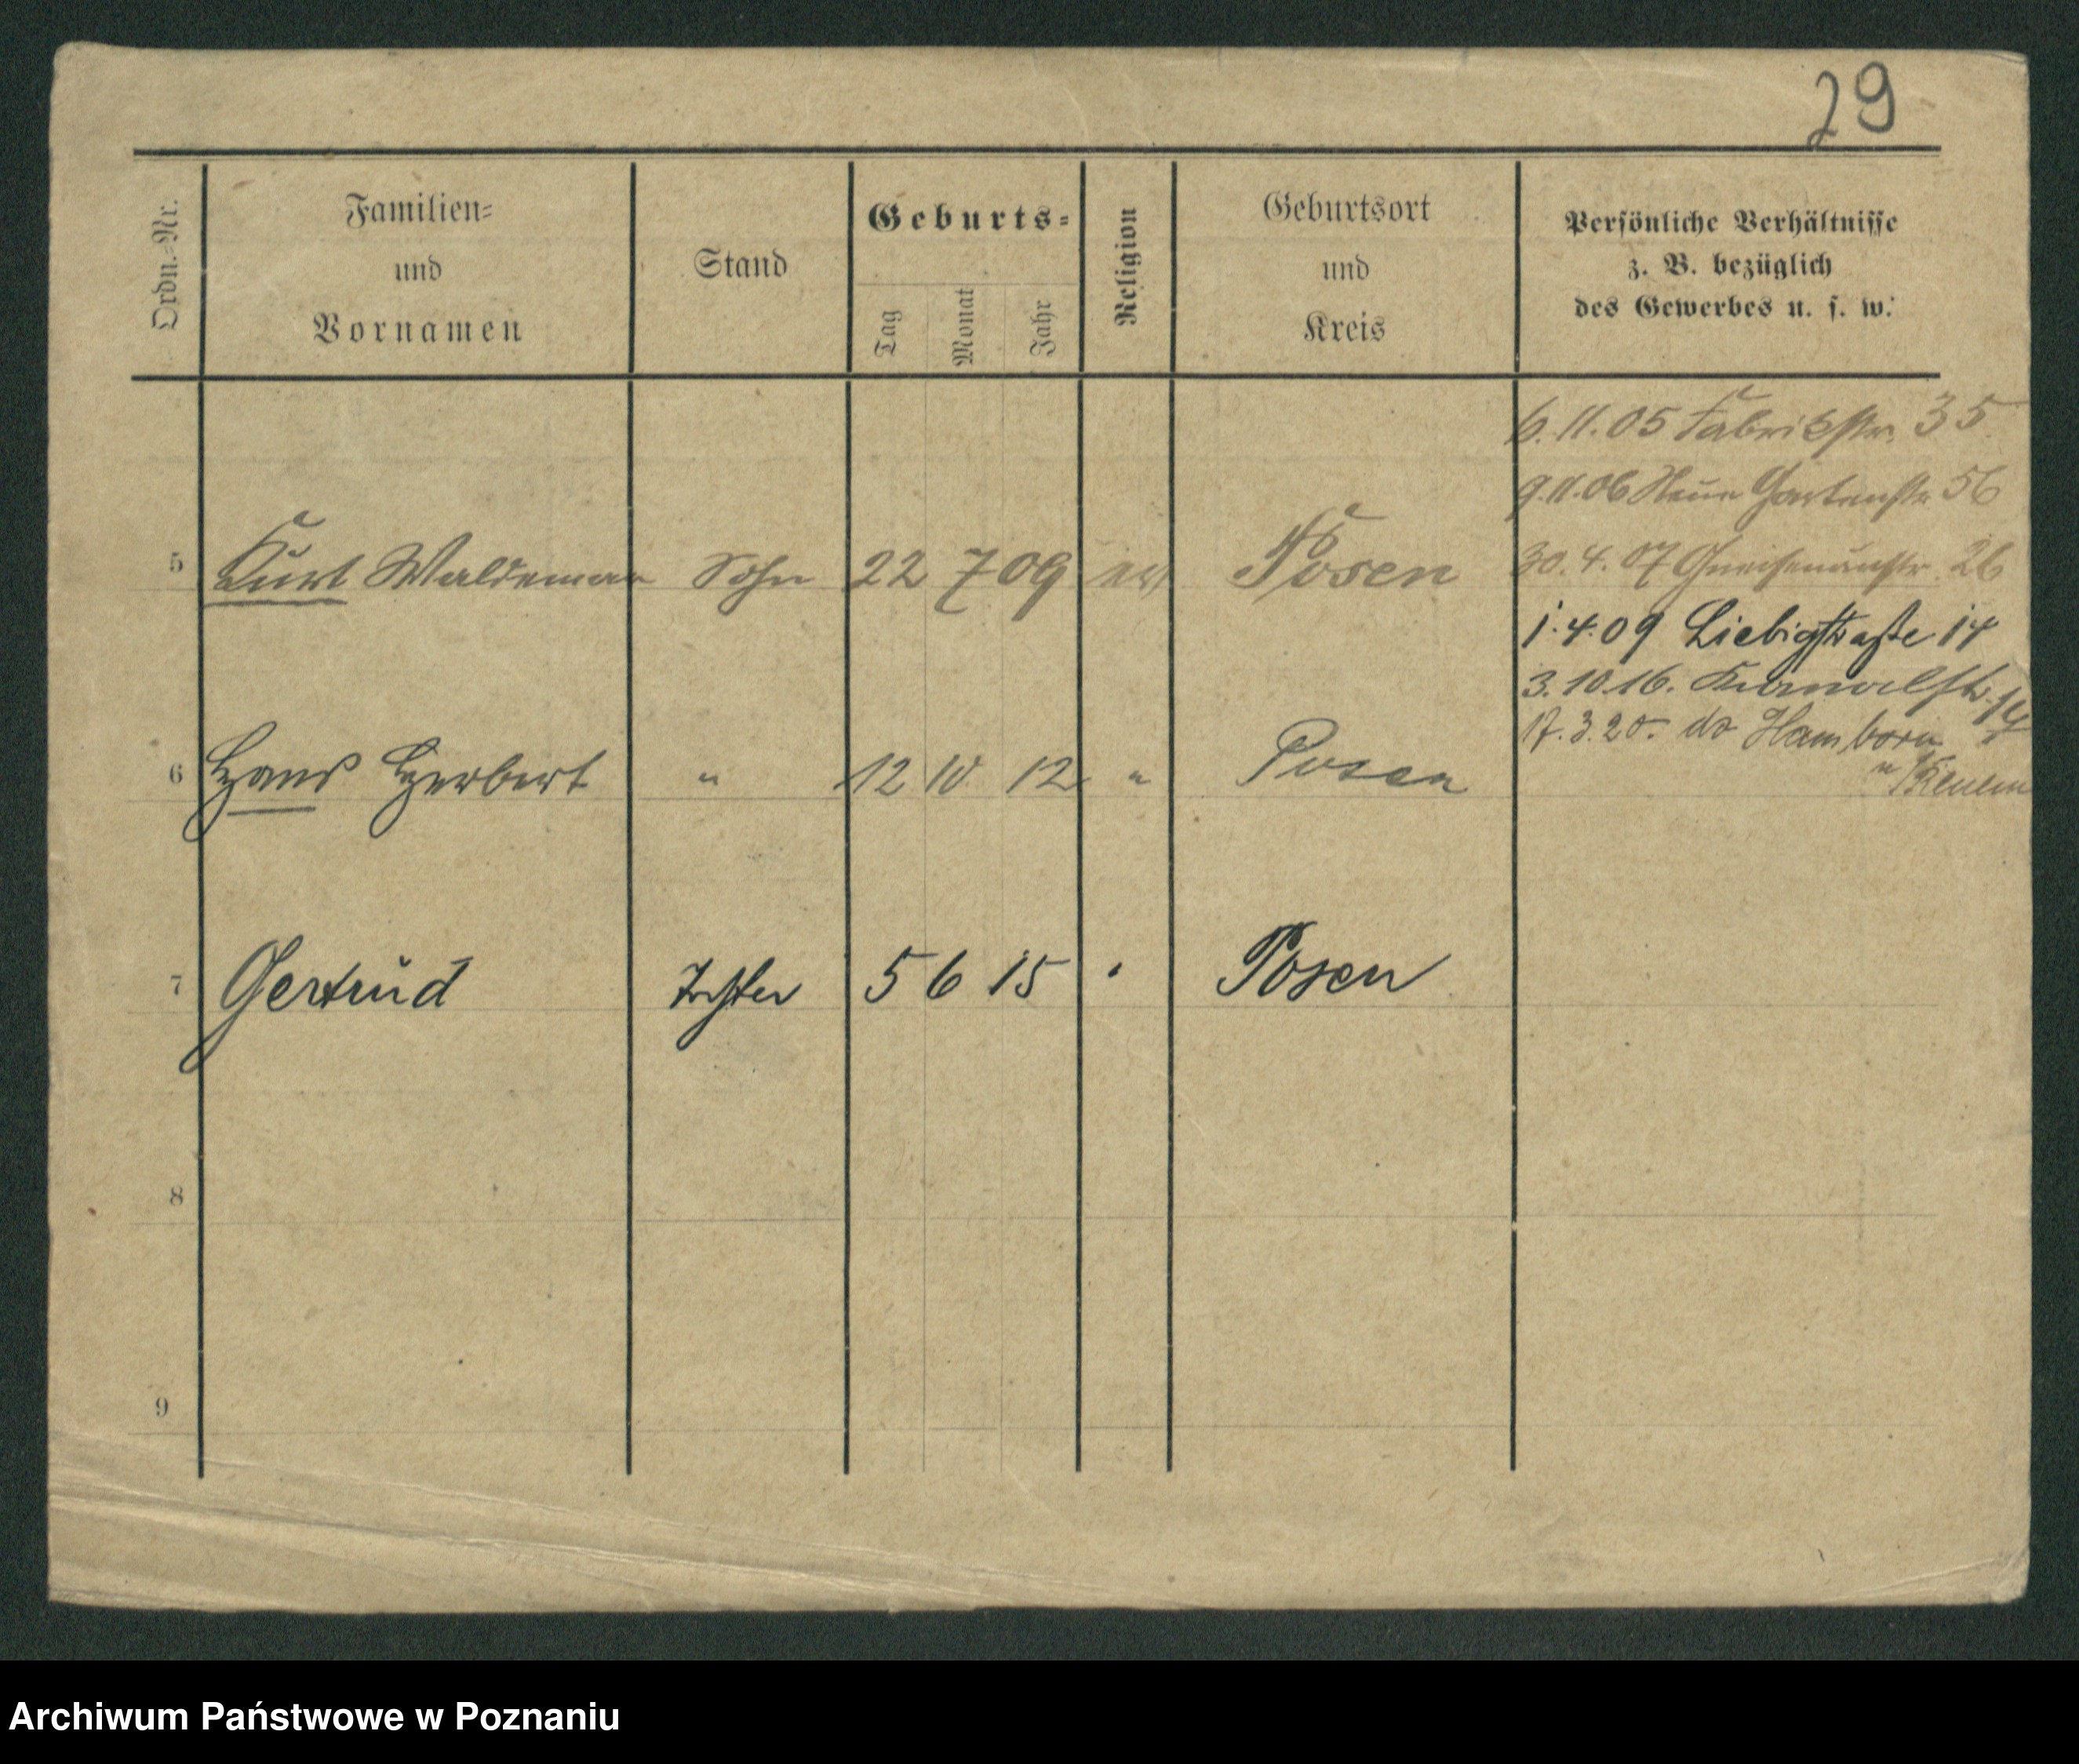 29
Ordn.-Nr.
Familien-
und
Vornamen
Stand
Geburts-
Tag
Monat
Jahr
Religion
Geburtsort
und
Kreis
Persönliche Verhältnisse
z. B. bezüglich
des Gewerbes u. s. w.
6.11.05 Fabrikstr. 35
9.11.06 Neue Gartenstr 56
30.4.07 Gneisenaustr. 26
1.4.09 Liebigstraße 14
3.10.16. Kanalstr. 14
17.3.20. do Hamborn
5 Kurt Waldemar Sohn 22 7 09 ev Posen
6 Hans Herbert " 12 10 12 " Posen
7 Gertrud Tochter 5 6 15 " Posen
8
9
Archiwum Państwowe w Poznaniu